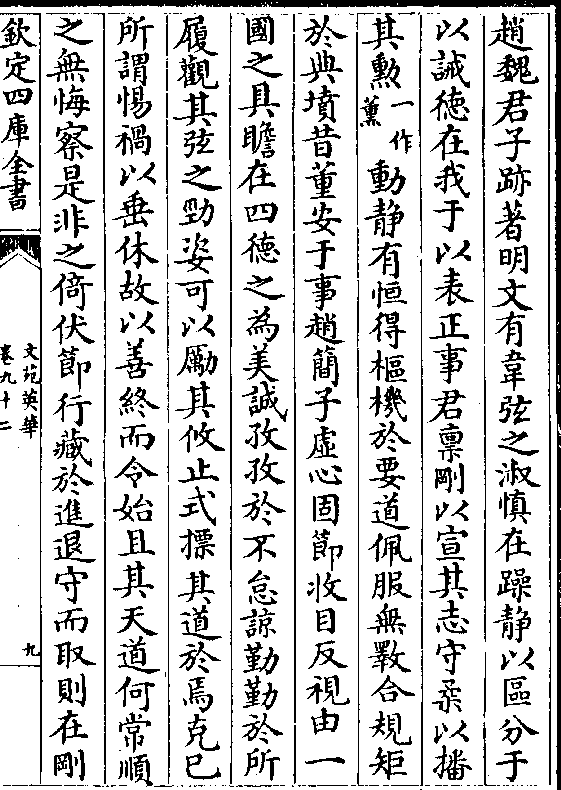 趙魏君子跡著明文有韋弦之淑慎在躁静以區分于
以誠徳在我于以表正事君禀剛以宣其志守柔以播
其勲一作薰動静有恒得樞機於要道佩服無斁合規矩
於典墳昔董安于事趙簡子虚心固節收目反視由一
國之具瞻在四徳之為美誠孜孜於不怠諒勤勤於所
履觀其弦之勁姿可以勵其攸止式摽其道於焉克已
所謂惕禍以垂休故以善終而令始且其天道何常順
之無悔察是非之倚伏節行藏於進退守而取則在剛
欽定四庫全書
文苑英華
卷九十二
九